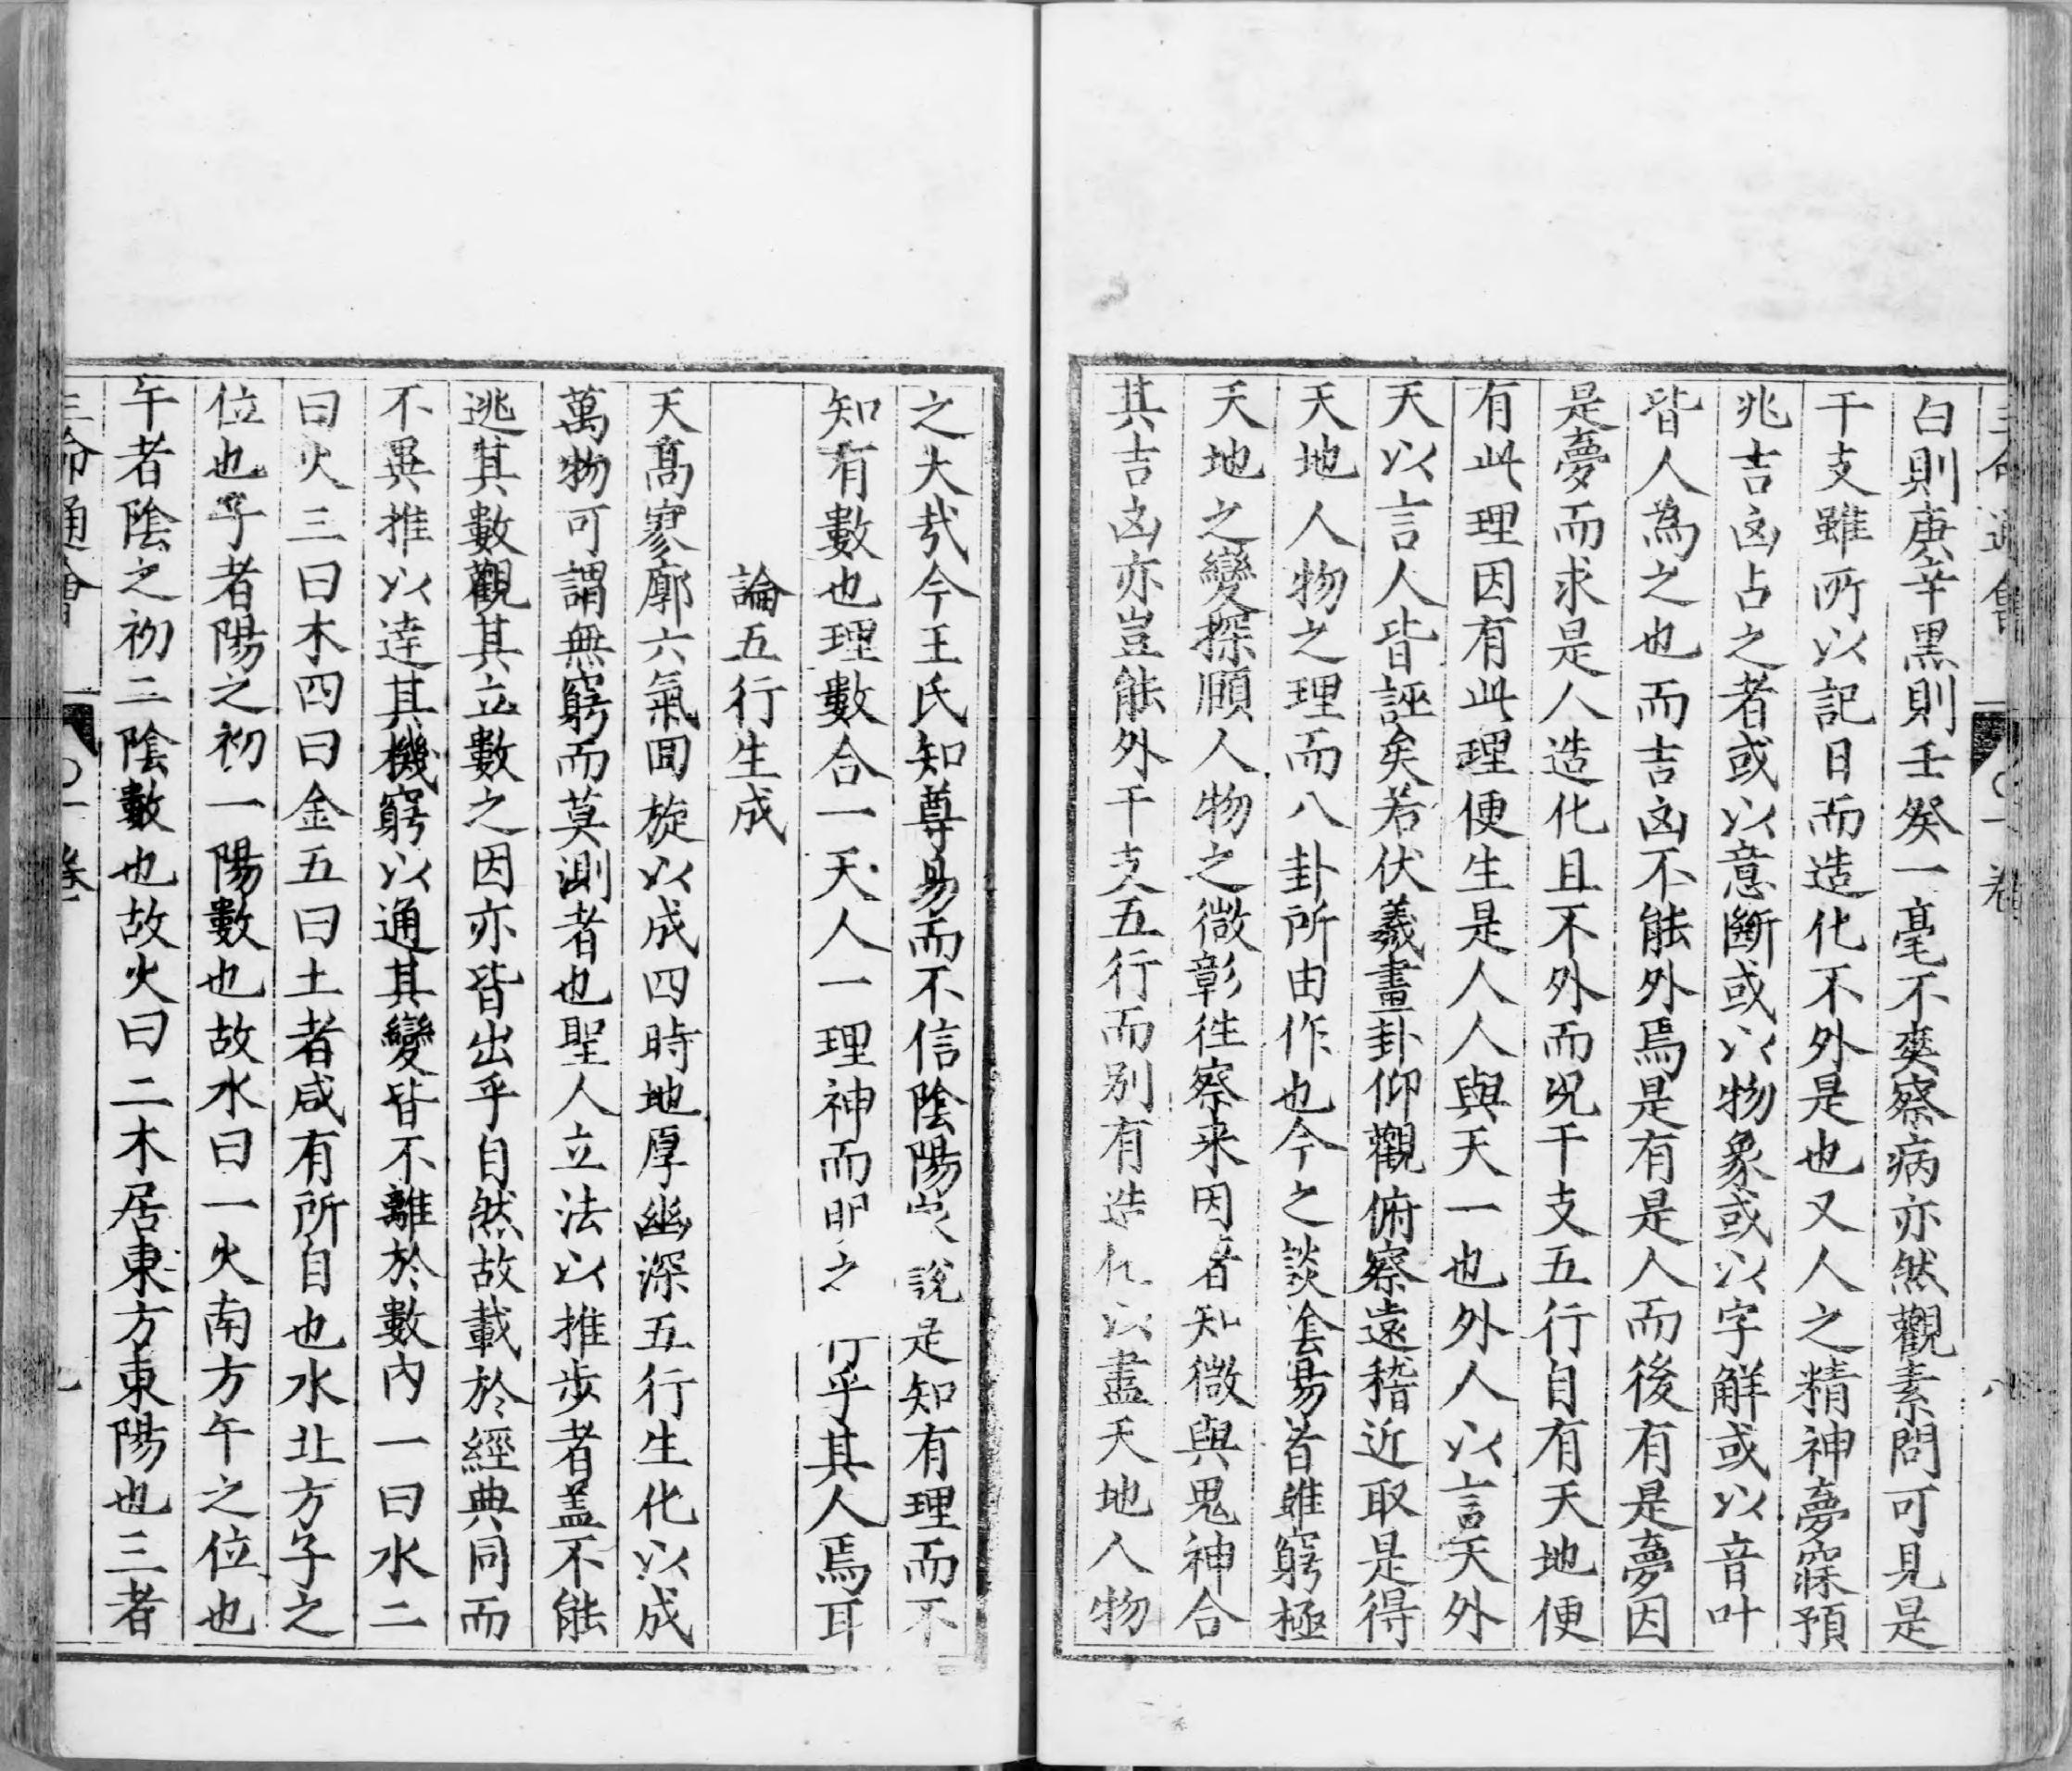 三命通會 一卷 八
白則庚辛黑則壬癸一毫不爽察病亦然觀素問可見是
干支雖所以記日而造化不外是也又人之精神夢寐預
兆吉凶占之者或以意斷或以物象或以字解或以音叶
皆人為之也而吉凶不能外焉是有是人而後有是夢因
是夢而求是人造化且不外而况干支五行自有天地便
有此理因有此理便生是人人與天一也外人以言天外
天以言人皆誣矣若伏羲畫卦仰觀俯察遠稽近取是得
天地人物之理而八卦所由作也今之談命易者雖窮極
天地之變探賾人物之微彰徃察来因者知微與鬼神合
其吉凶亦豈能外干支五行而别有造化以盡天地人物
之大㢤今王氏知尊易而不信陰陽之說是知有理而不
知有數也理數合一天人一理神而明之存乎其人焉耳
論五行生成
天髙寥廓六氣囘旋以成四時地厚幽深五行生化以成
萬物可謂無窮而莫測者也聖人立法以推步者盖不能
逃其數觀其立數之因亦皆出乎自然故載於經典同而
不異推以逹其機窮以通其變皆不離於數内一曰水二
曰火三曰木四曰金五曰土者咸有所自也水北方子之
位也子者陽之初一陽數也故水曰一火南方午之位也
午者陰之初二陰數也故火曰二木居東方東陽也三者
三命通會 一卷 九